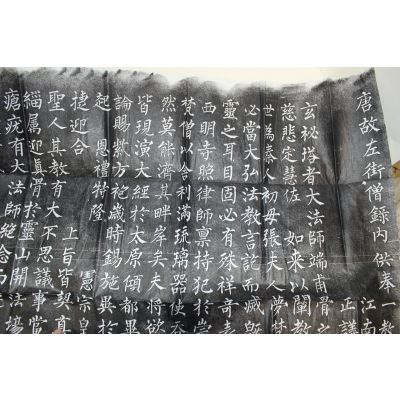 一教
江南
正議
唐故左街僧錄內供奉
玄祕塔者大法師端甫骨之
慈悲定慧佐 如來以闡教
世為秦人初母張夫人夢梵
必當大弘法教言訖而滅既
靈之耳目固必有殊祥奇表
西明寺照律師稟持犯於崇
梵僧以舍利滿琉璃器使吞
然莫能濟其畔岸矣夫將欲
皆現演大經於太原傾都畢
論賜紫方袍歲時錫施異於
起 恩禮特隆 憲宗皇
捷迎合 上旨皆契真
聖人其教有大不思議事當
緇屬迎真骨於靈山開法場
瘡疣有大法師絕念而